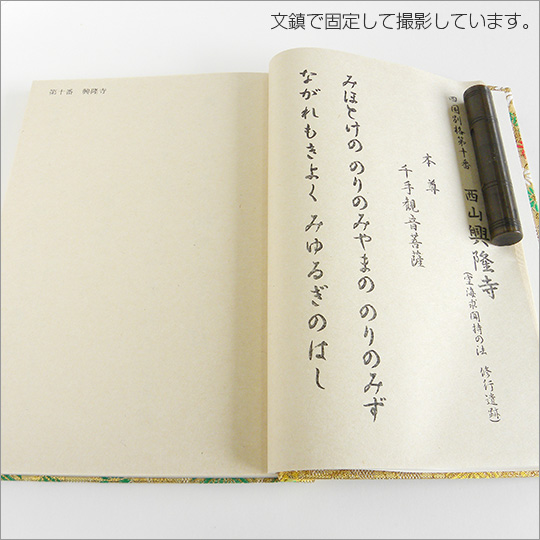 文鎮で固定して撮影しています。
四国別格第十番
西山興隆寺
(空海求聞持の法 修行遺跡)
本尊
千手観音菩薩
みほとけの のりのみやまの のりのみず
ながれもきよく みゆるぎのはし
第十番 興隆寺